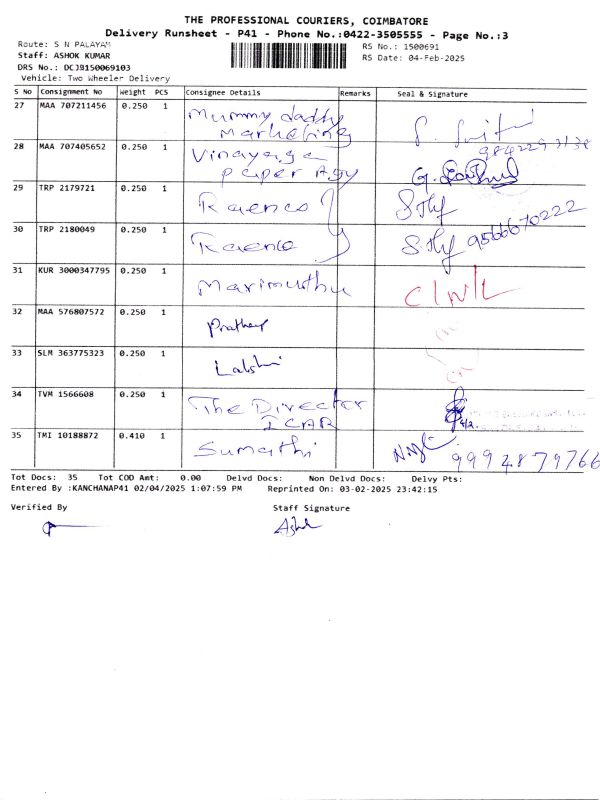 THE PROFESSIONAL COURIERS, COIMBATORE
Delivery Runsheet - P41 - Phone No.:0422-3505555 - Page No.:3
Route: S N PALAYAM
RS No.: 1500691
Staff: ASHOK KUMAR
RS Date: 04-Feb-2025
DRS No.: DCJ9150069103
Vehicle: Two Wheeler Delivery
S No Consignment No Weight PCS Consignee Details Remarks Seal & Signature
27 MAA 707211456 0.250 1 Mummy daddy
Marketing
28 MAA 707405652 0.250 1 Vinayaga
paper Agy
29 TRP 2179721 0.250 1 Raenco
30 TRP 2180049 0.250 1 Raenco 9566670222
31 KUR 3000347795 0.250 1 Marimuthu C/N/L
32 MAA 576807572 0.250 1
33 SLM 363775323 0.250 1 Lakshmi
34 TVM 1566608 0.250 1 The Director
ICAR
35 TMI 10188872 0.410 1 Sumathi 9994879766
Tot Docs: 35 Tot COD Amt: 0.00 Delvd Docs: Non Delvd Docs: Delvy Pts:
Entered By :KANCHANAP41 02/04/2025 1:07:59 PM Reprinted On: 03-02-2025 23:42:15
Verified By Staff Signature